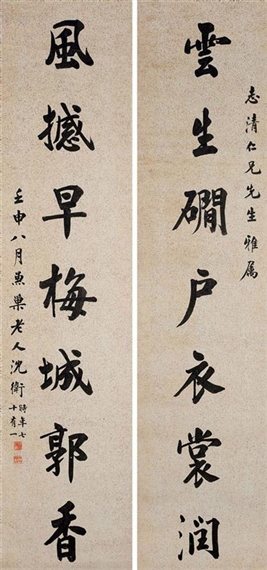 雲生磵户衣裳潤
志清仁兄先生雅属
風撼早梅城郭香
壬申八月魚巢老人沈衛
時年七
十有一